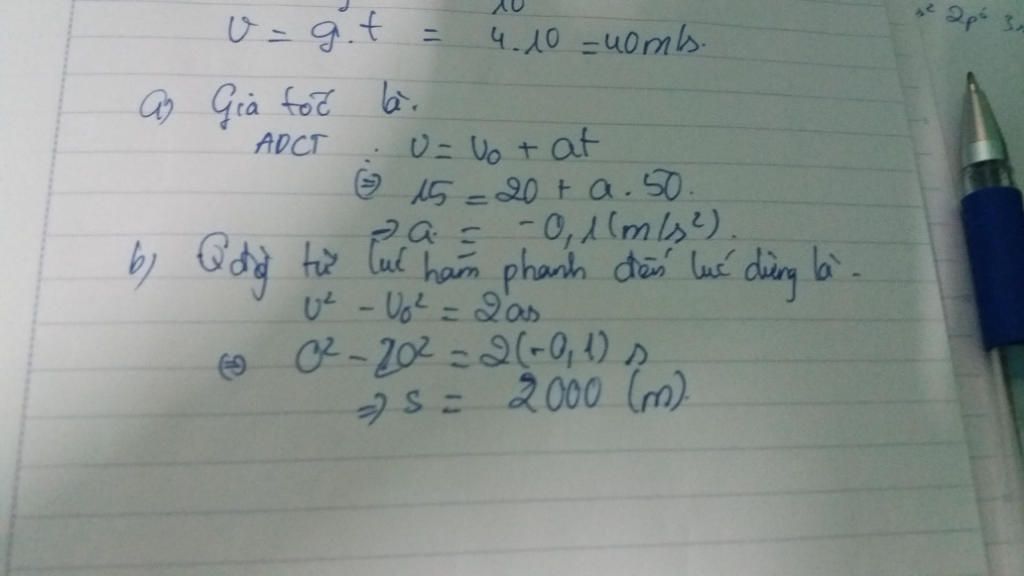 10
v = g.t = 4.10 = 40m/s.
s² 2p⁶ 3
a) Gia tốc là.
ADCT : v = v₀ + at
(⇒) 15 = 20 + a . 50.
⇒ a = -0,1 (m/s²).
b) Qđg từ lúc hãm phanh đến lúc dừng là.
v² - v₀² = 2as
⇔ 0² - 20² = 2(-0,1) s
⇒ s = 2000 (m).